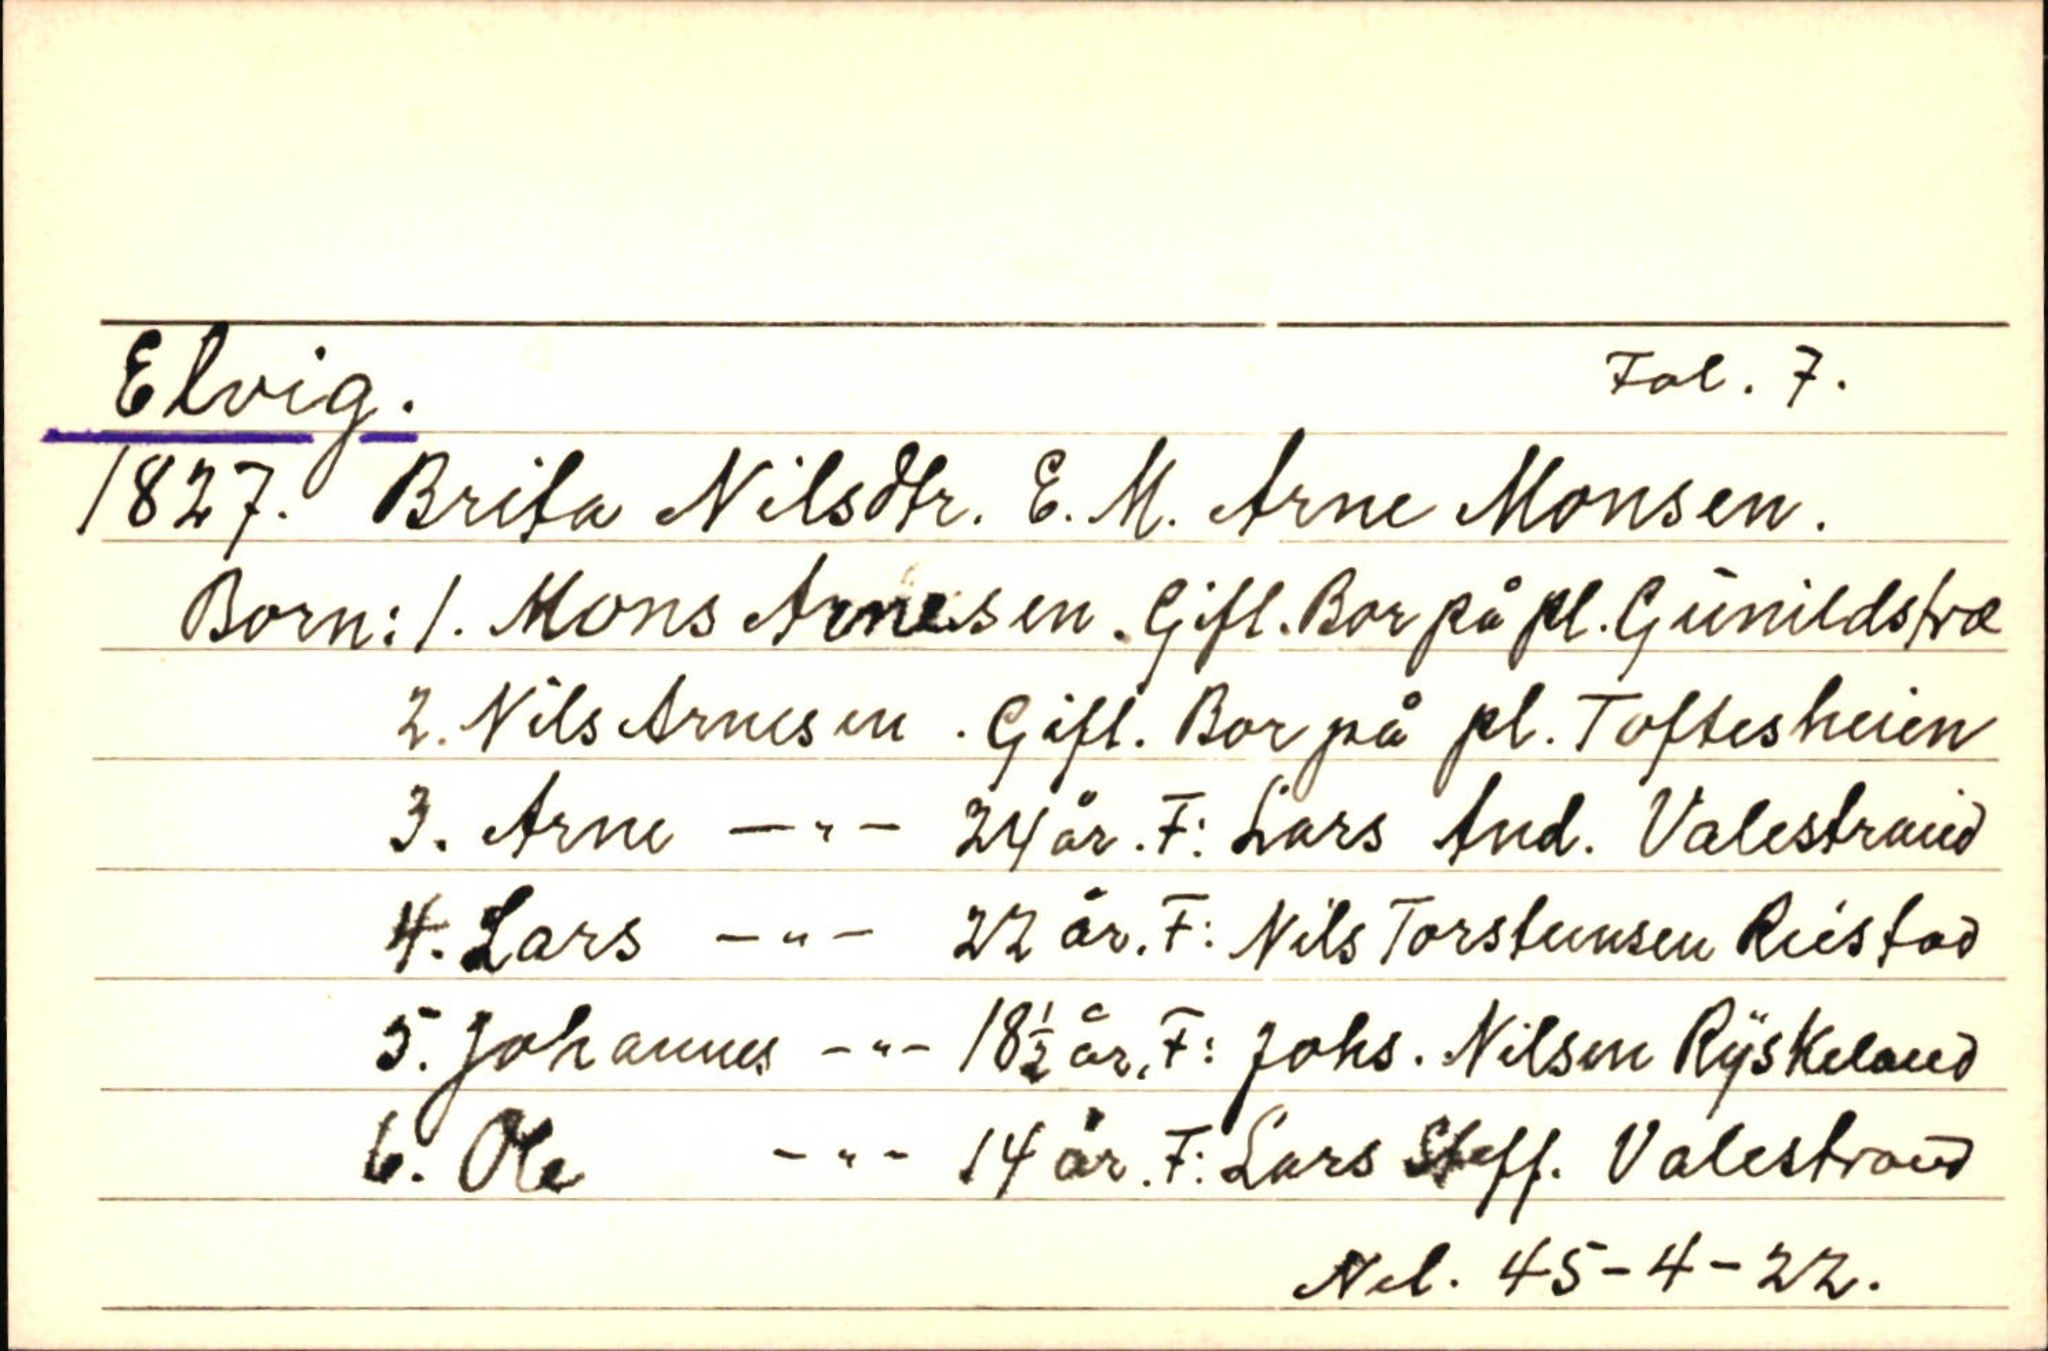 Elvig. Fol. 7.
1827. Brita Nilsdtr. E. M. Arne Monsen.
Born: 1. Mons Arnesen. Gift. Bor på pl. Gŭnildstræ
2. Nils Arnesen. Gift. Bor på pl. Toftesheien
3. Arne —"— 24 år. F: Lars And. Valestrand
4. Lars —"— 22 år. F: Nils Torstensen Rŭstad
5. Johannes —"— 18½ år, F: Johs. Nilsen Rÿskeland
6. Ole —"— 14 år. F: Lars Steff. Valestrand
Nel. 45-4-22.